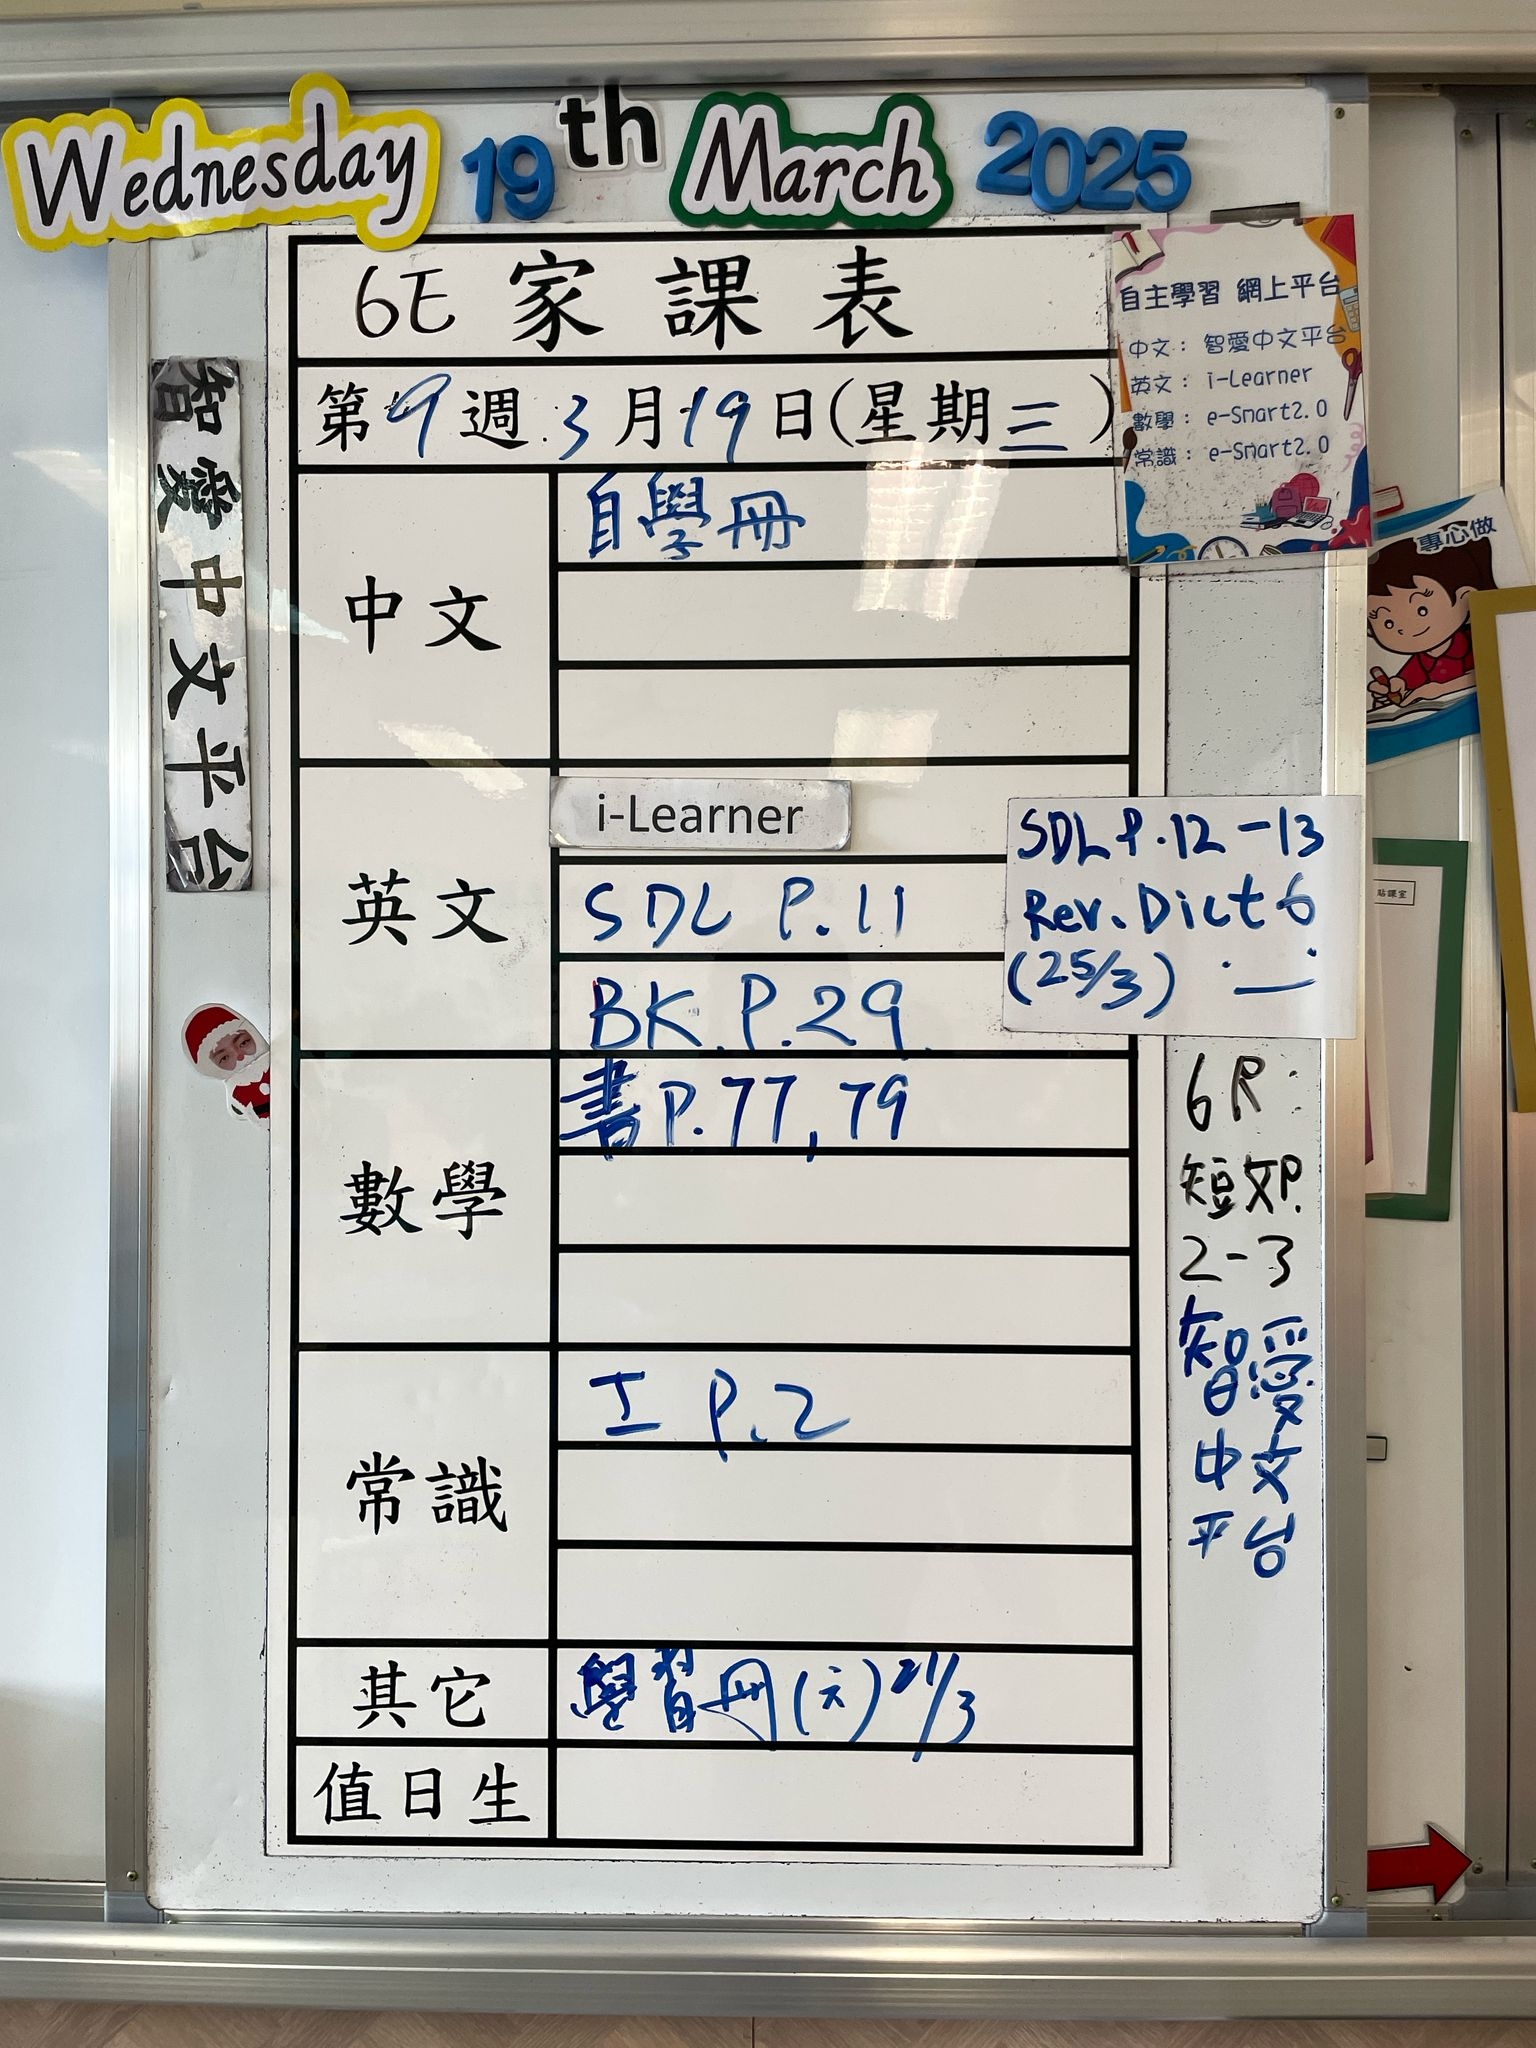 Wednesday 19th March 2025
6E 家課表
第9週 3月19日(星期三)
自主學習 網上平台
中文: 智愛中文平台
英文: i-Learner
數學: e-Smart2.0
常識: e-Smart2.0
智愛中文平台
中文
自學冊
專心做
英文
i-Learner
SDL P.11
BK P.29
SDL P.12-13
Rev. Dict 6
(25/3)
貼課室
數學
書P.77, 79
6R:
短文P.
2-3
智愛
中文
平台
常識
工 P.2
其它
學習冊(六) 21/3
值日生